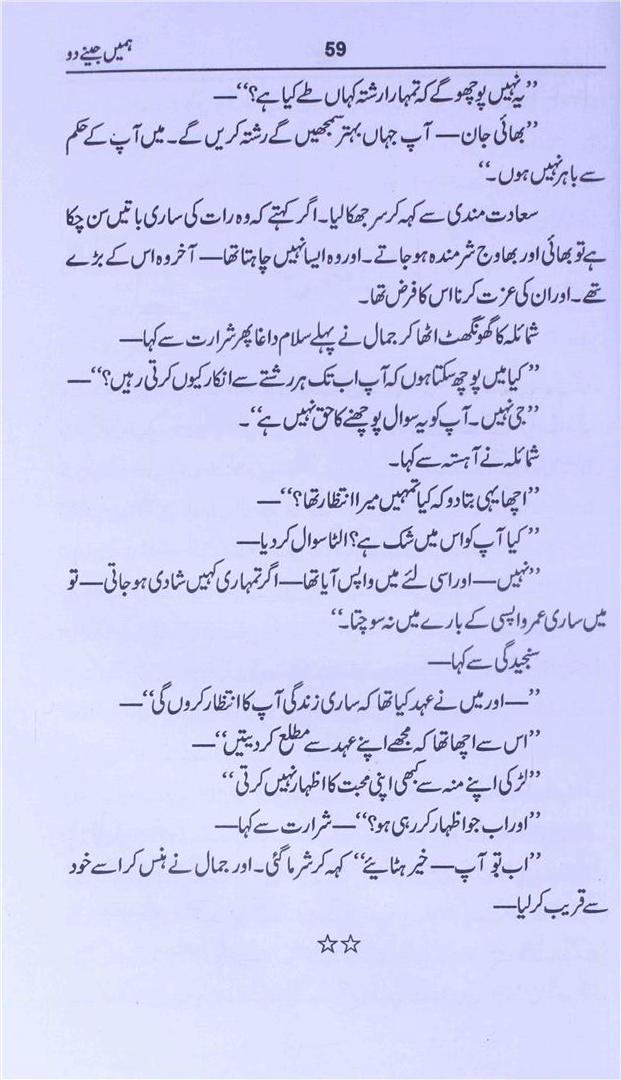 ہمیں جینے دو
59
”یہ نہیں پوچھو گے کہ تمہارا رشتہ کہاں طے کیا ہے؟“—
”بھائی جان— آپ جہاں بہتر سمجھیں گے رشتہ کریں گے۔ میں آپ کے حکم
سے باہر نہیں ہوں۔“
سعادت مندی سے کہہ کر سر جھکا لیا۔ اگر کہتے کہ وہ رات کی ساری باتیں سن چکا
ہے تو بھائی اور بھاوج شرمندہ ہو جاتے۔ اور وہ ایسا نہیں چاہتا تھا— آخر وہ اس کے بڑے
تھے۔ اور ان کی عزت کرنا اس کا فرض تھا۔
شمائلہ کا گھونگھٹ اٹھا کر جمال نے پہلے سلام داغا پھر شرارت سے کہا—
”کیا میں پوچھ سکتا ہوں کہ آپ اب تک ہر رشتے سے انکار کیوں کرتی رہیں؟“—
”جی نہیں۔ آپ کو یہ سوال پوچھنے کا حق نہیں ہے“۔
شمائلہ نے آہستہ سے کہا۔
”اچھا یہی بتا دو کہ کیا تمہیں میرا انتظار تھا؟“—
”کیا آپ کو اس میں شک ہے؟ الٹا سوال کر دیا—
”نہیں— اور اسی لئے میں واپس آیا تھا— اگر تمہاری کہیں شادی ہو جاتی— تو
میں ساری عمر واپسی کے بارے میں نہ سوچتا۔“
سنجیدگی سے کہا—
”— اور میں نے عہد کیا تھا کہ ساری زندگی آپ کا انتظار کروں گی“—
”اس سے اچھا تھا کہ مجھے اپنے عہد سے مطلع کر دیتیں“—
”لڑکی اپنے منہ سے کبھی اپنی محبت کا اظہار نہیں کرتی“
”اور اب جو اظہار کر رہی ہو؟“— شرارت سے کہا—
”اب تو آپ— خیر ہٹائیے“ کہہ کر شرما گئی۔ اور جمال نے ہنس کر اسے خود
سے قریب کر لیا—
☆☆